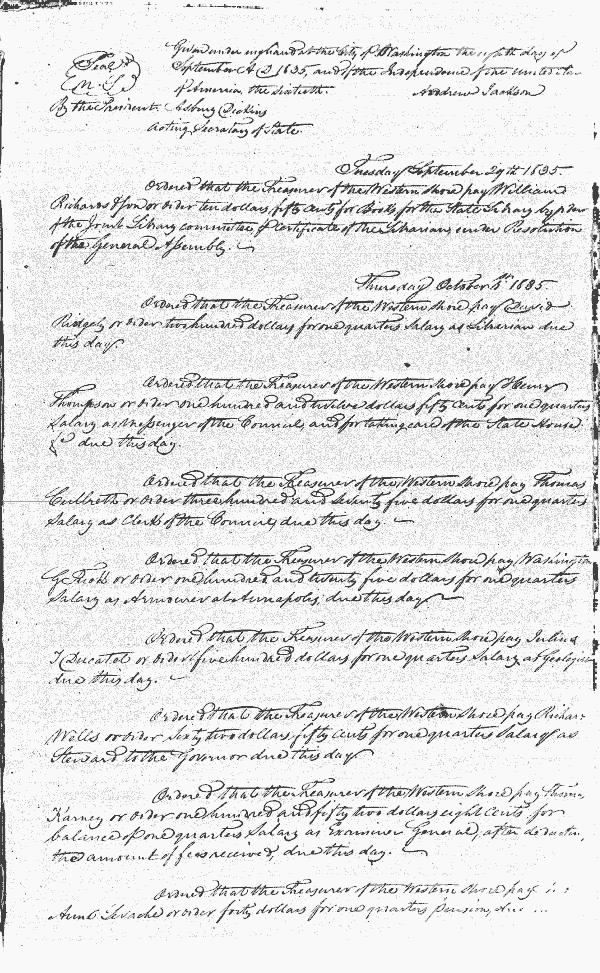 Given under my hand at the City of Washington the ninth day of
Seal
September A D 1835, and of the Independence of the United
of America the sixtieth. Andrew Jackson
By the President. Asbury Dickins
Acting Secretary of State.
Tuesday September 29th 1835.
Ordered that the Treasurer of the Western Shore pay William
Richards & Son or order ten dollars, fifty cents for Books for the State Library by order
of the Joint Library committee, & Certificate of the Librarian, under Resolution
of the General Assembly.
Thursday October 1st 1835
Ordered that the Treasurer of the Western Shore pay David
Ridgely or order two hundred dollars for one quarters Salary as Librarian due
this day.
Ordered that the Treasurer of the Western Shore pay Henry
Thompson or order one hundred and twelve dollars fifty Cents for one quarters
Salary as Messenger of the Council, and for taking care of the State House
&c due this day.
Ordered that the Treasurer of the Western Shore pay Thomas
Culbreth or order three hundred and seventy five dollars for one quarters
Salary as Clerk of the Council, due this day.
Ordered that the Treasurer of the Western Shore pay Washington
G Tuck or order one hundred and twenty five dollars for one quarters
Salary as Armourer at Annapolis, due this day
Ordered that the Treasurer of the Western Shore pay Julius
T Ducatel or order five hundred dollars for one quarters Salary as Geologist
due this day.
Ordered that the Treasurer of the Western Shore pay Richard
Wells or order Sixty two dollars, fifty Cents for one quarters Salary as
Steward to the Governor due this day
Ordered that the Treasurer of the Western Shore pay Thomas
Karney or order one hundred and fifty two dollars eight Cents, for
balance of one quarters Salary as Examiner General, after deducting
the amount of fees received, due this day.
Ordered that the Treasurer of the Western Shore pay
Ann Levache or order forty dollars for one quarters pension, due